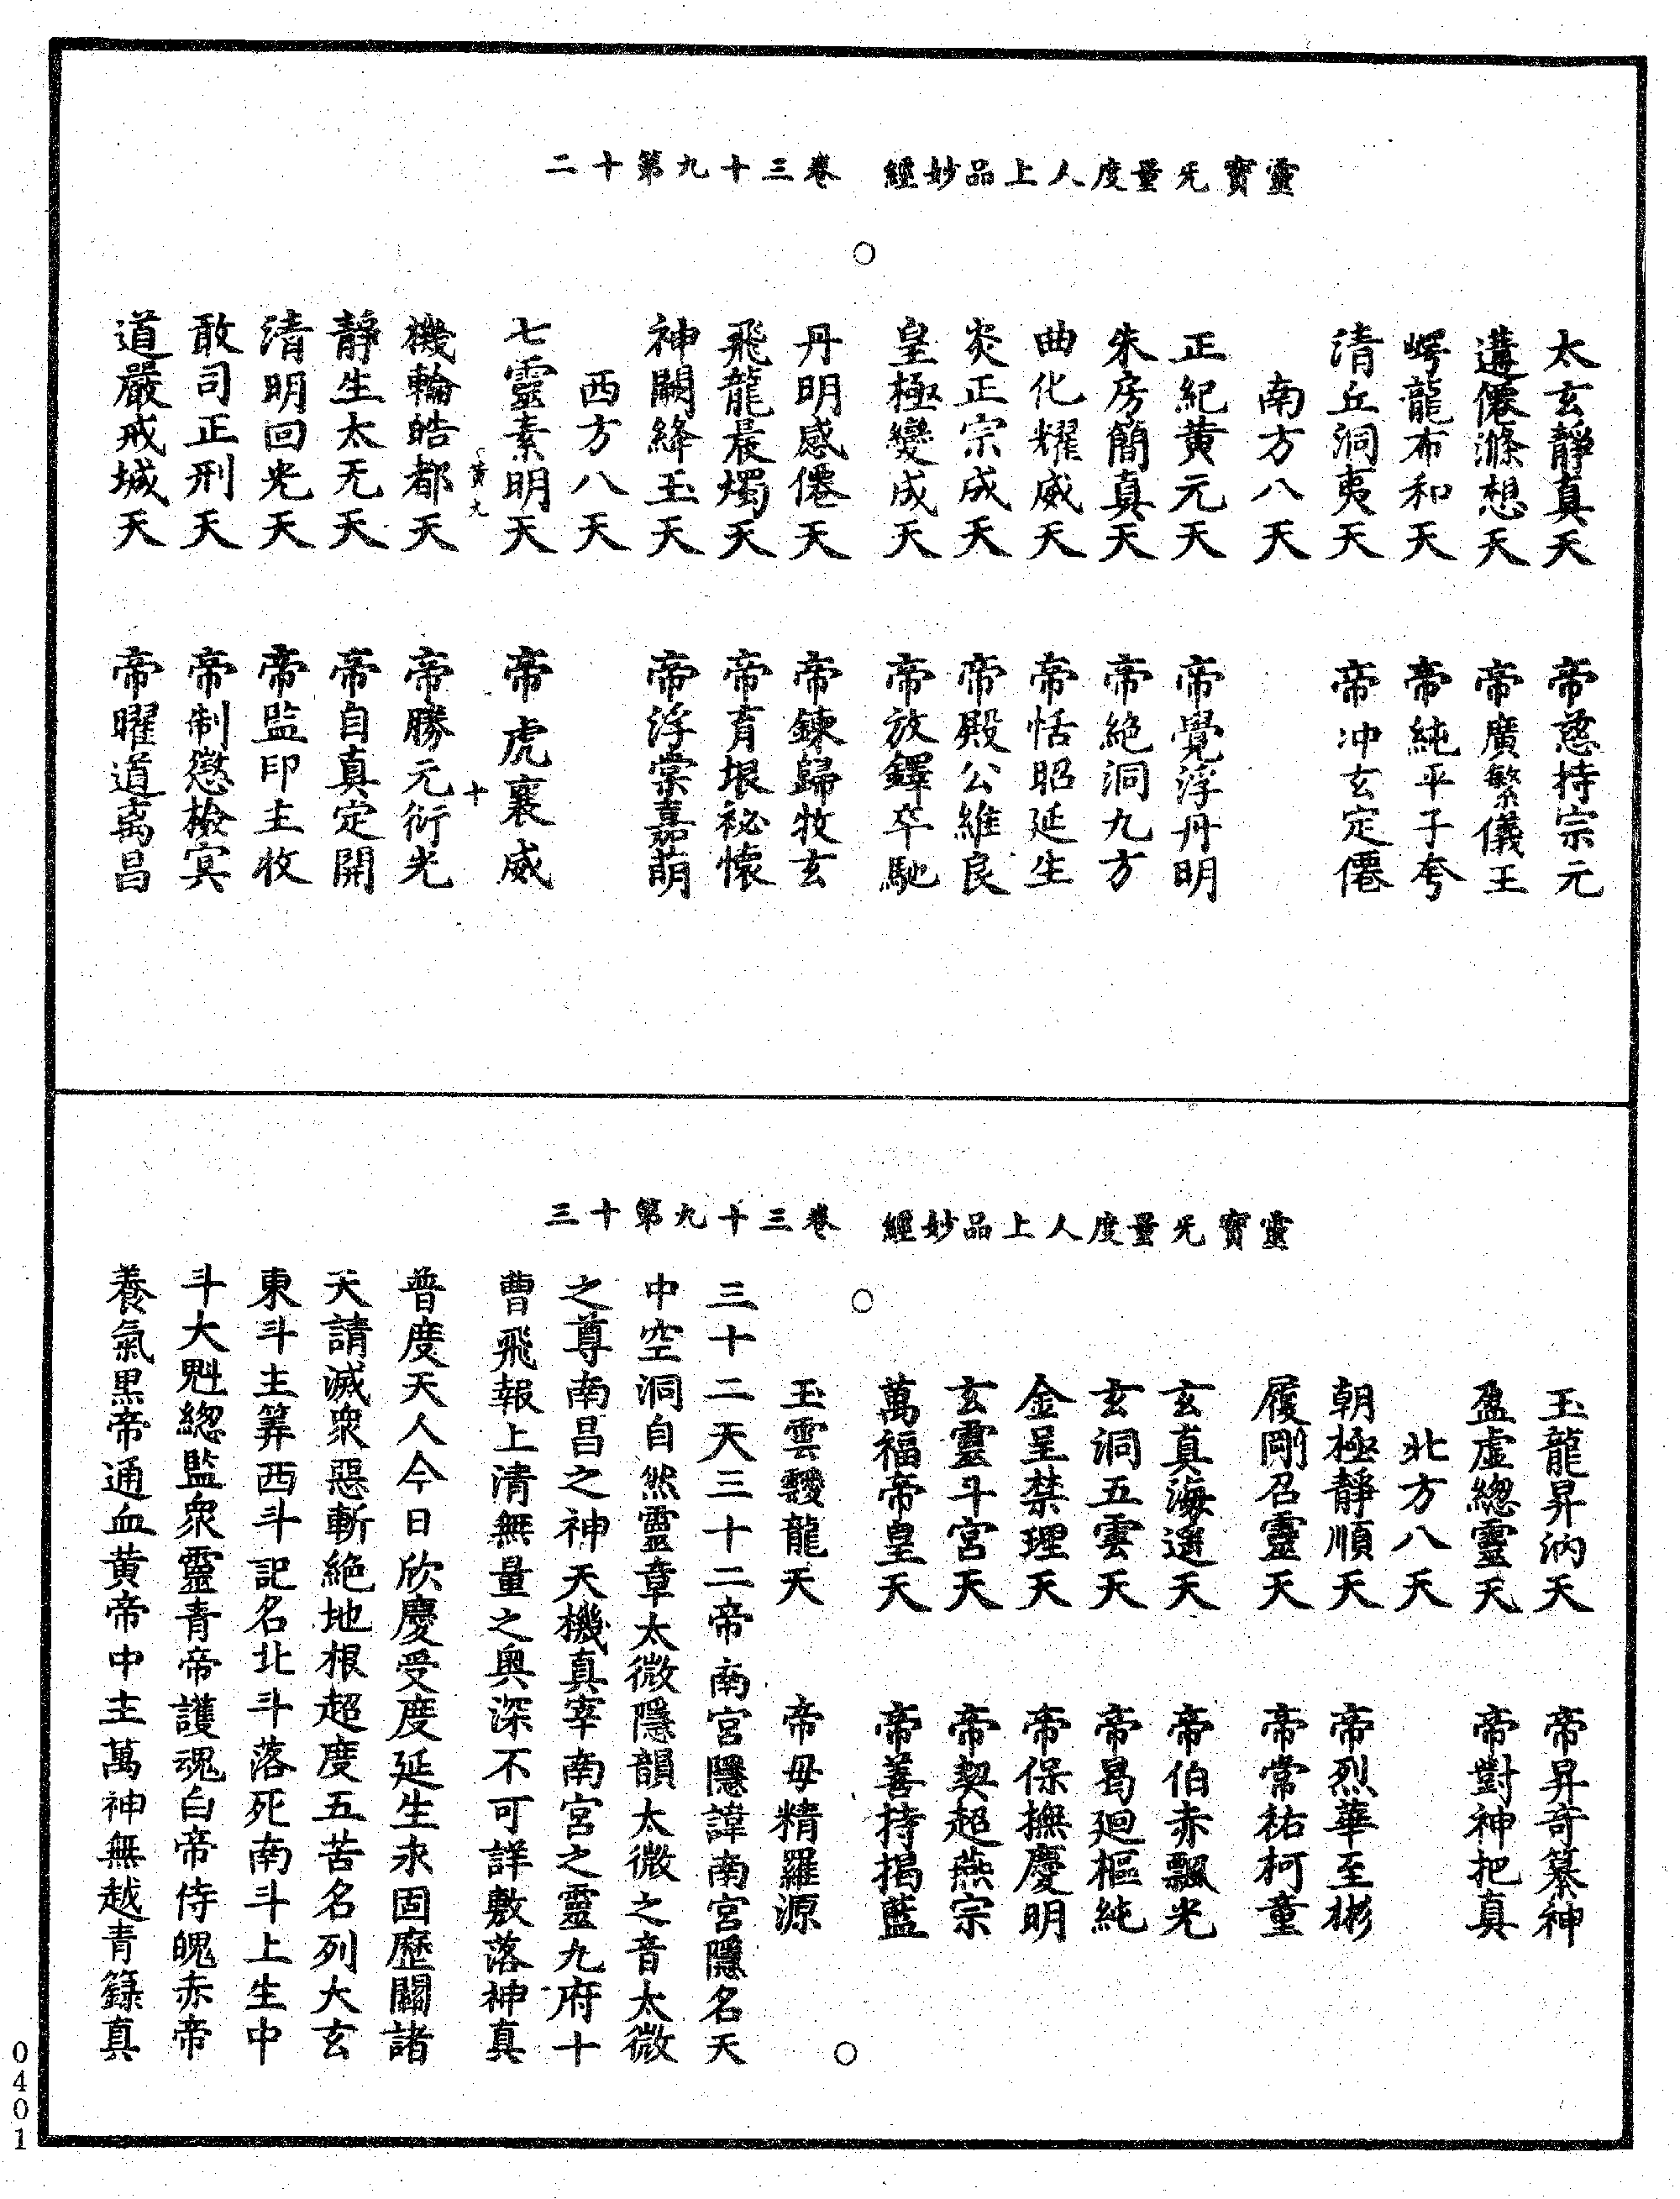 靈寶无量度人上品妙經　卷三十九第十二
太玄靜真天　帝慈持宗元
遘僊滌想天　帝廣繁儀王
崿龍布和天　帝純平子夸
清丘洞夷天　帝冲玄定僊
南方八天
正紀黄元天　帝覺浮丹明
朱房簡真天　帝絶洞九方
曲化耀威天　帝恬昭延生
炎正宗成天　帝殿公維良
皇極變成天　帝放鐸卒馳
丹明感僊天　帝鍊歸牧玄
飛龍晨燭天　帝育垠祕懷
神闕絳玉天　帝浮棠嘉萌
西方八天
七靈素明天　帝虎襄威
黄九　十
機輪皓都天　帝勝元衍光
靜生太无天　帝自真定開
清明回光天　帝監印主收
敢司正刑天　帝制愆檢冥
道嚴戒城天　帝曜道离昌
靈寶无量度人上品妙經　卷三十九第十三
玉龍昇汭天　帝昇奇纂神
盈虛緫靈天　帝對神把真
北方八天
朝極靜順天　帝烈華至彬
履剛召靈天　帝常祐柯童
玄真海遙天　帝伯赤飄光
玄洞五雲天　帝曷廻樞純
金呈禁理天　帝保撫慶明
玄靈斗宮天　帝契超燕宗
萬福帝皇天　帝善持揭藍
玉雲靉龍天　帝母精羅源
三十二天三十二帝南宮隱諱南宮隱名天
中空洞自然靈章太微隱韻太微之音太微
之尊南昌之神天機真宰南宮之靈九府十
曹飛報上清無量之奥深不可詳敷落神真
普度天人今日欣慶受度延生永固歷關諸
天請滅衆惡斬絶地根超度五苦名列大玄
東斗主筭西斗記名北斗落死南斗上生中
斗大魁緫監衆靈青帝護魂白帝侍魄赤帝
養氣黒帝通血黄帝中主萬神無越青籙真
0401